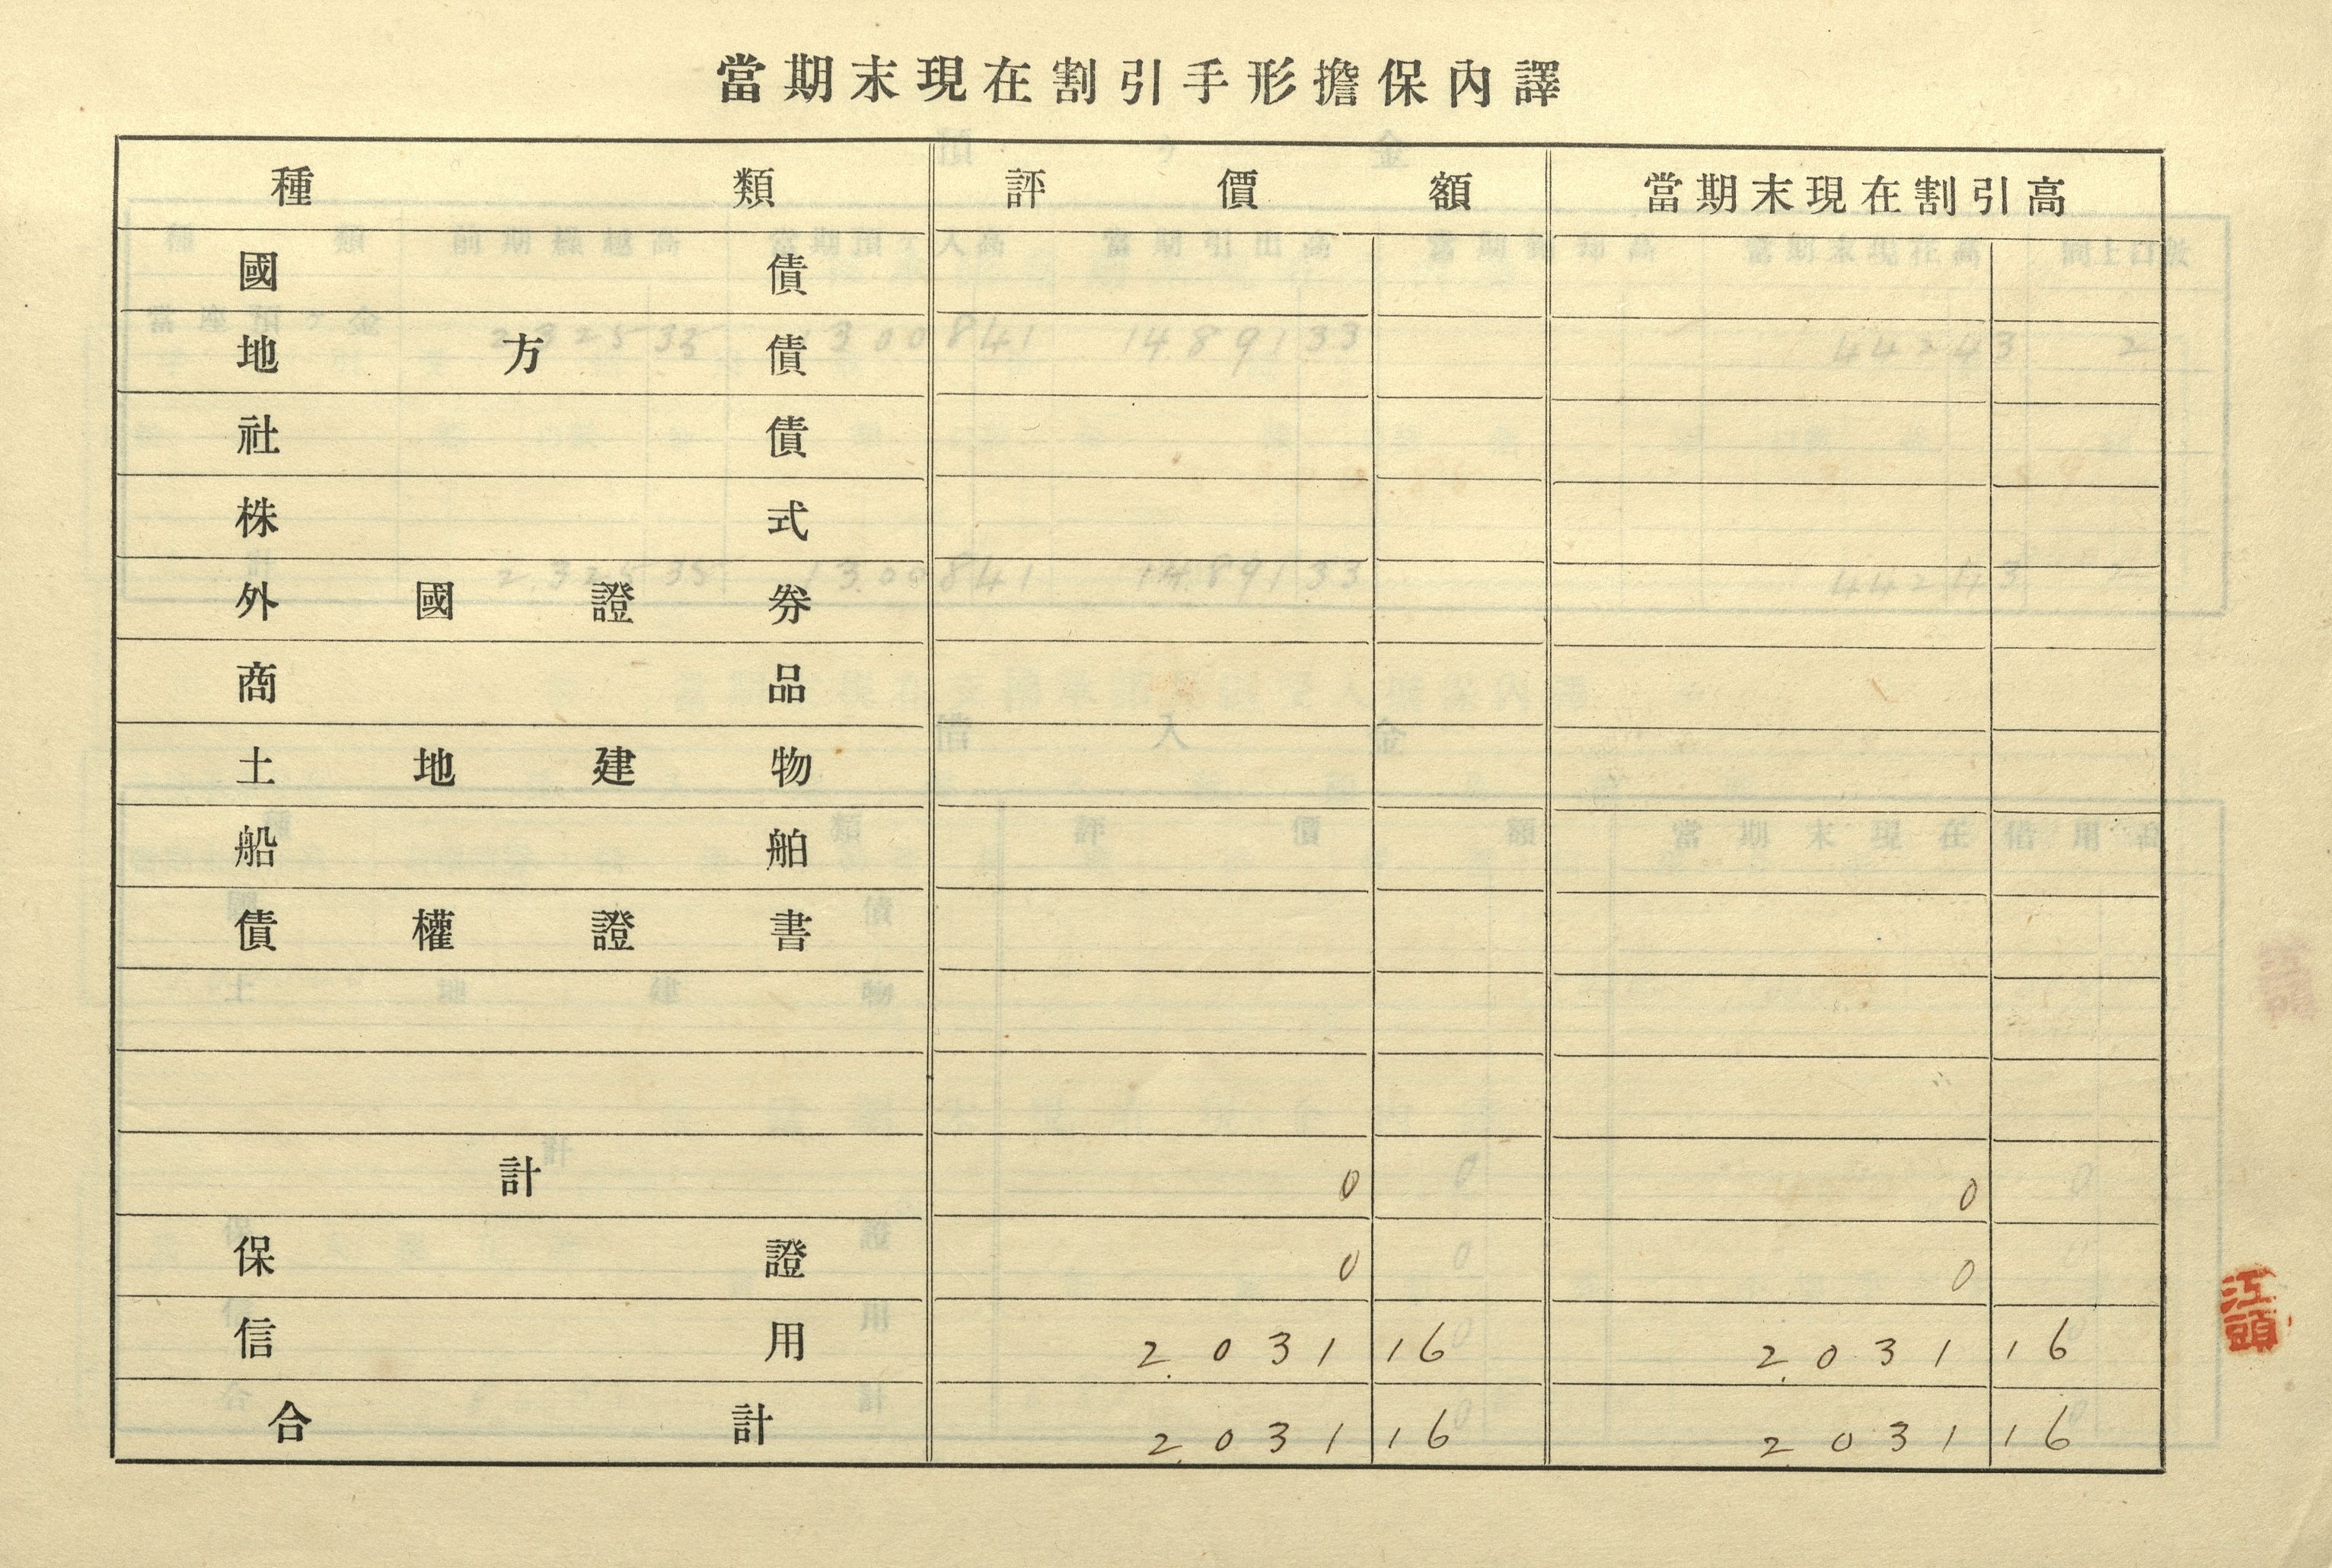 當期末現在割引手形擔保內譯
種類 評價額 當期末現在割引高
國債
地方債
社債
株式
外國證券
商品
土地建物
船舶
債權證書
計 0 0
保證 0 0
信用 2,031 16 2,031 16
合計 2,031 16 2,031 16
江頭